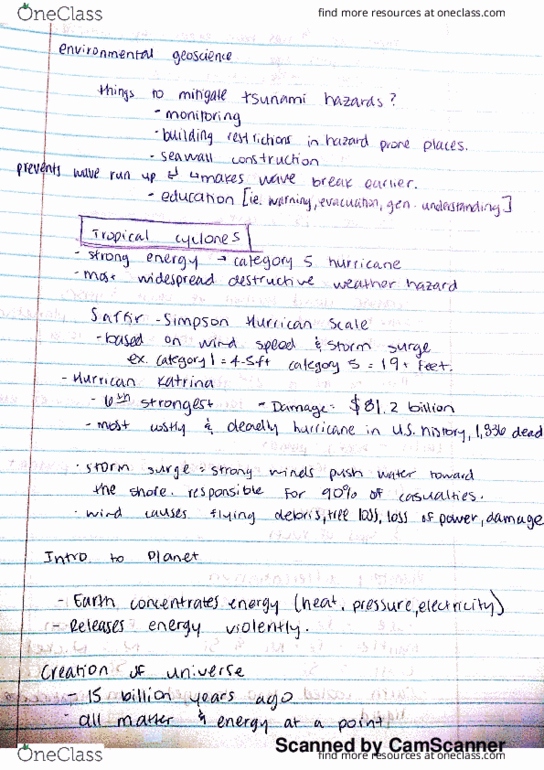 OneClass
find more resources at oneclass.com
environmental geoscience
things to mitigate tsunami hazards?
- monitoring
- building restrictions in hazard prone places.
- seawall construction
prevents wave run up & ↳makes wave break earlier.
- education [ie. warning, evacuation, gen. understanding]
Tropical cyclones
- strong energy → category 5 hurricane
- most widespread destructive weather hazard
Saffir - Simpson Hurrican Scale
- based on wind speed & storm surge
ex. category 1 = 4-5ft category 5 = 19+ feet.
- Hurrican Katrina
- 6th strongest - Damage = $81.2 billion
- most costly & deadly hurricane in U.S. history, 1,836 dead
· storm surge = strong winds push water toward
the shore. responsible for 90% of casualties.
· wind causes flying debris, tree loss, loss of power, damage
Intro to Planet
- Earth concentrates energy (heat, pressure, electricity)
- Releases energy violently.
Creation of universe
- 15 billion years ago
- all matter & energy at a point
Scanned by CamScanner
OneClass
find more resources at oneclass.com